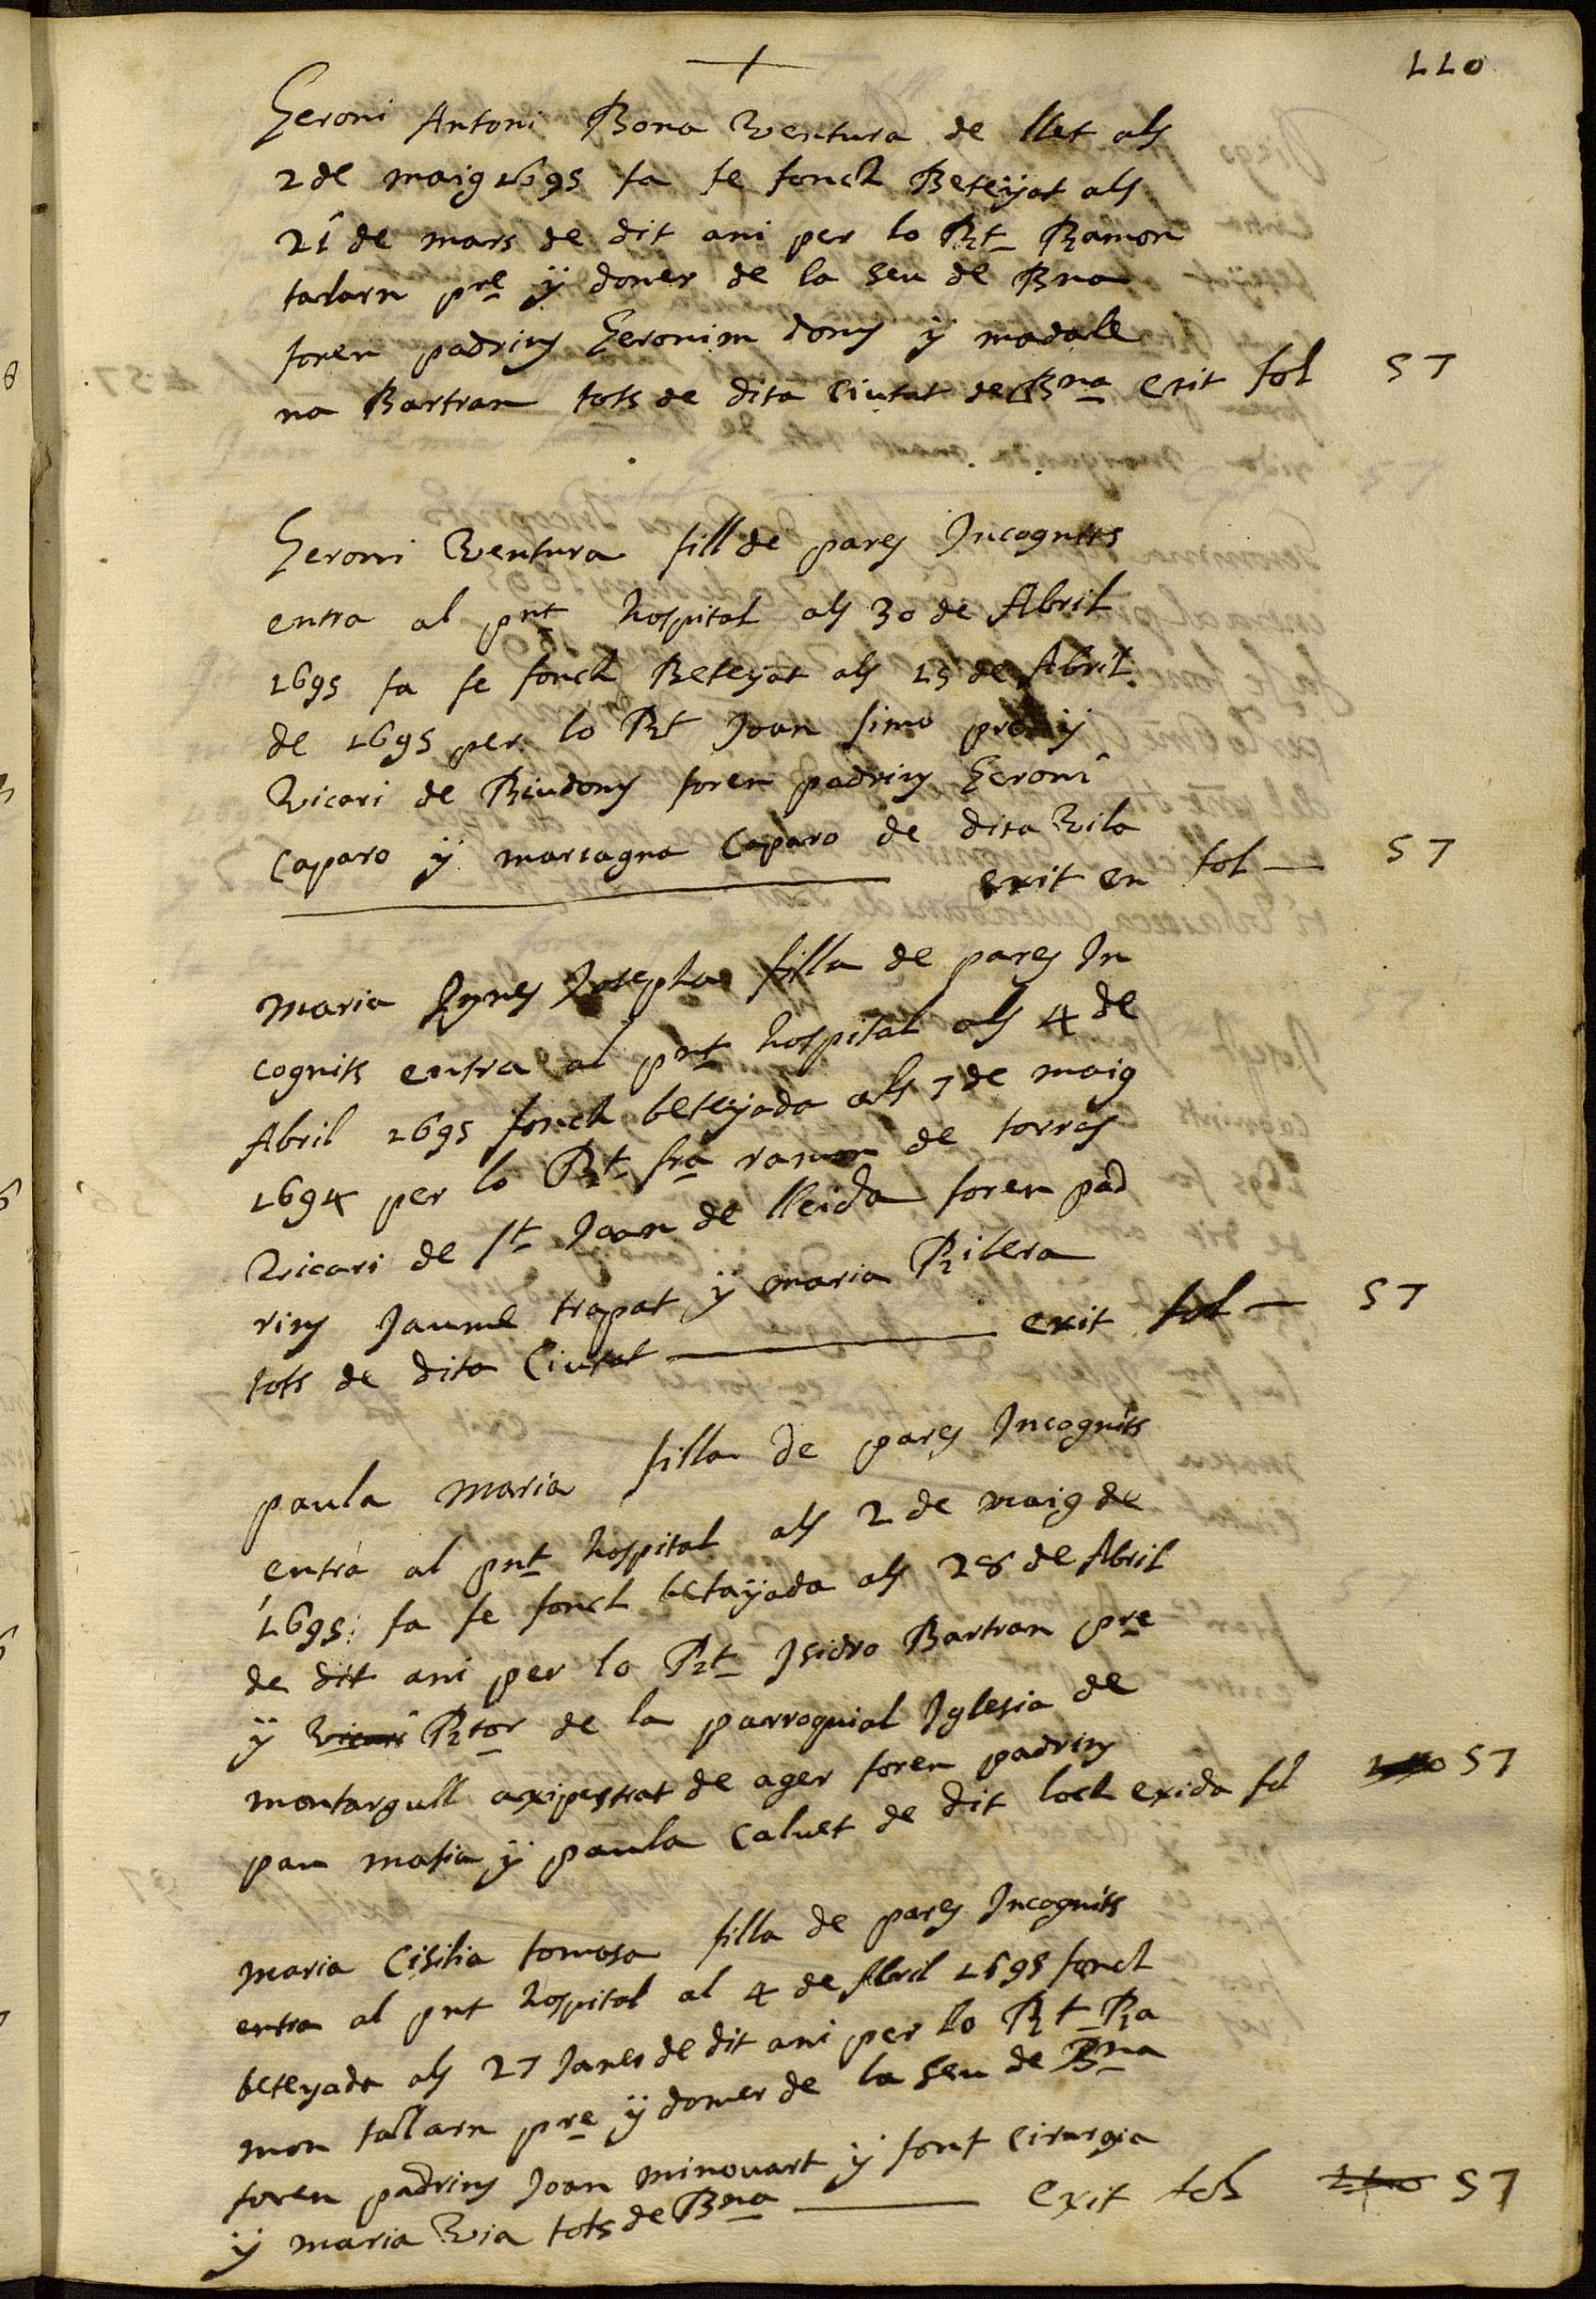 110
Geroni Antoni Bona Ventura de llet als
2 de maig 1695 fa fe fonch Betejat als
21 de mars de dit ani per lo Rt Ramon
talarn pre y doner de la Seu de Bna
foren padrins Geronim doms y madale
na Bartran tots de dita Ciutat de Bna exit fol 57
Geroni Ventura fill de pares Incognits
entra al pnt hospital als 30 de Abril
1695 fa fe fonch Betejat als 15 de Abril
de 1695 per lo Rt Joan simo pre y
Vicari de Riudoms foren padrins Geroni
Caparo y marsagna Caparo de dita Vila
exit en fol 57
Maria Agnes Josepha filla de pares In
cognits entra al pnt hospital als 4 de
Abril 1695 fonch betejada als 7 de maig
1694 per lo Rt fra ramon de torres
Vicari de St Joan de lleida foren pad
rins Jaume trapat y maria Ribera
tots de dita Ciutat exit fol 57
paula maria filla de pares Incognits
entra al pnt hospital als 2 de maig de
1695 fa fe fonch betajada als 28 de Abril
de dit ani per lo Rt Isidro Bartran pre
y Vicari Rtor de la parroquial Iglesia de
montargull axiprestrat de ager foren padrins
pau masia y paula Calvet de dit loch exida fol 110 57
Maria Cisilia tomasa filla de pares Incognits
entra al pnt hospital al 4 de Abril 1695 fonch
betejada als 27 Janer de dit ani per lo Rt Ra
mon tallarn pre y domer de la Seu de Bna
foren padrins Joan minovart y font Cirurgia
y maria Via tots de Bna exit fol 110 57